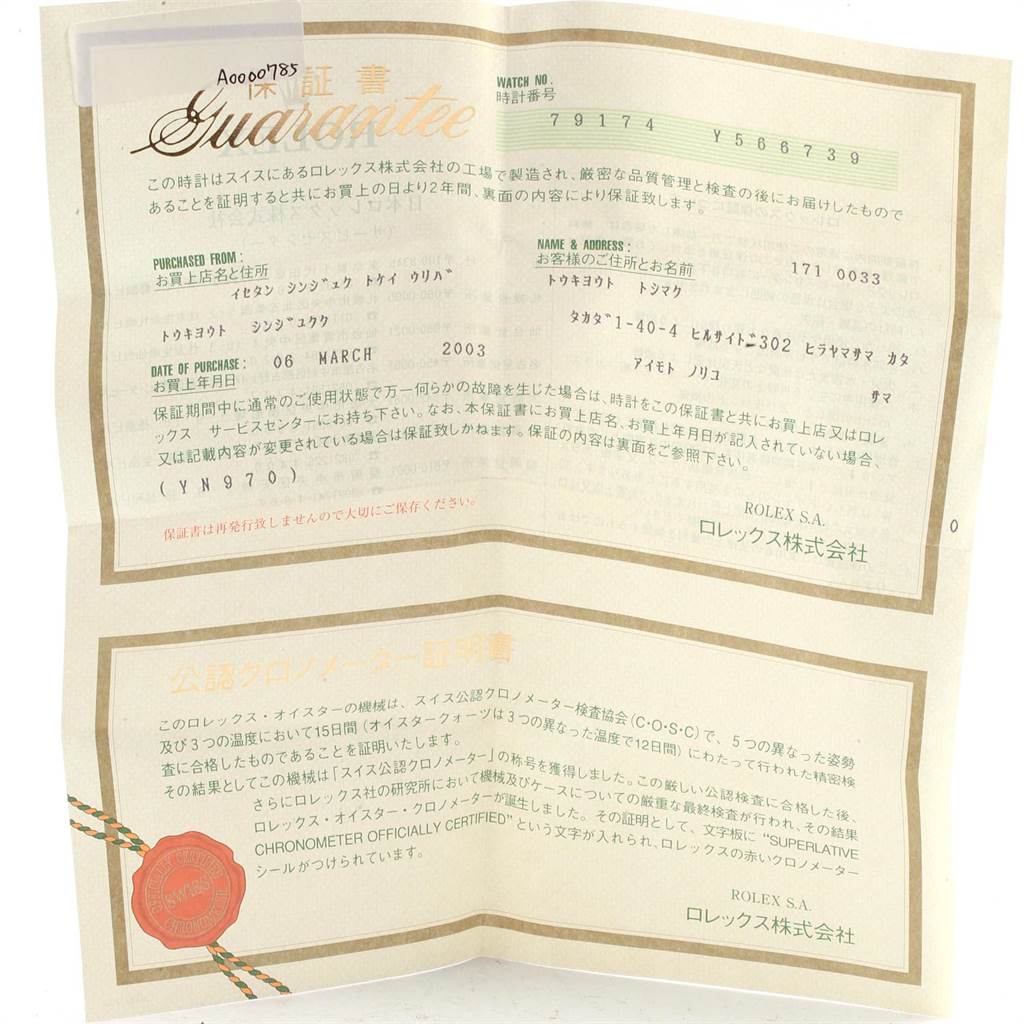 A0000785
保証書
Guarantee
WATCH NO.
時計番号
79174 Y566739
この時計はスイスにあるロレックス株式会社の工場で製造され、厳密な品質管理と検査の後にお届けしたもので
あることを証明すると共にお買上の日より2年間、裏面の内容により保証致します。
PURCHASED FROM :
お買上店名と住所
イセタン シンジュク トケイ ウリバ
トウキヨウト シンジユクク
NAME & ADDRESS :
お客様のご住所とお名前
171 0033
トウキヨウト トシマク
タカダ1-40-4 ヒルサイド302 ヒラヤマサマ カタ
アイモト ノリコ
サマ
DATE OF PURCHASE :
お買上年月日
06 MARCH 2003
保証期間中に通常のご使用状態で万一何らかの故障を生じた場合は、時計をこの保証書と共にお買上店又はロレ
ックス サービスセンターにお持ち下さい。なお、本保証書にお買上店名、お買上年月日が記入されていない場合、
又は記載内容が変更されている場合は保証致しかねます。保証の内容は裏面をご参照下さい。
(YN970)
保証書は再発行致しませんので大切にご保存ください。
ROLEX S.A.
ロレックス株式会社
0
公認クロノメーター証明書
このロレックス・オイスターの機械は、スイス公認クロノメーター検査協会(C・O・S・C)で、5つの異なった姿勢
及び3つの温度において15日間(オイスタークォーツは3つの異なった温度で12日間)にわたって行われた精密検
査に合格したものであることを証明いたします。
その結果としてこの機械は「スイス公認クロノメーター」の称号を獲得しました。この厳しい公認検査に合格した後、
さらにロレックス社の研究所において機械及びケースについての厳重な最終検査が行われ、その結果
ロレックス・オイスター・クロノメーターが誕生しました。その証明として、文字板に “SUPERLATIVE
CHRONOMETER OFFICIALLY CERTIFIED” という文字が入れられ、ロレックスの赤いクロノメーター
シールがつけられています。
OFFICIALLY CERTIFIED
SWISS
CHRONOMETER
ROLEX S.A.
ロレックス株式会社